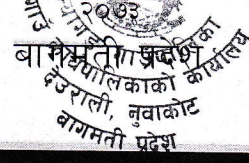 २०७३
बागमती प्रदेश
गाउँपालिकाको कार्यालय
देउराली, नुवाकोट
बागमती प्रदेश